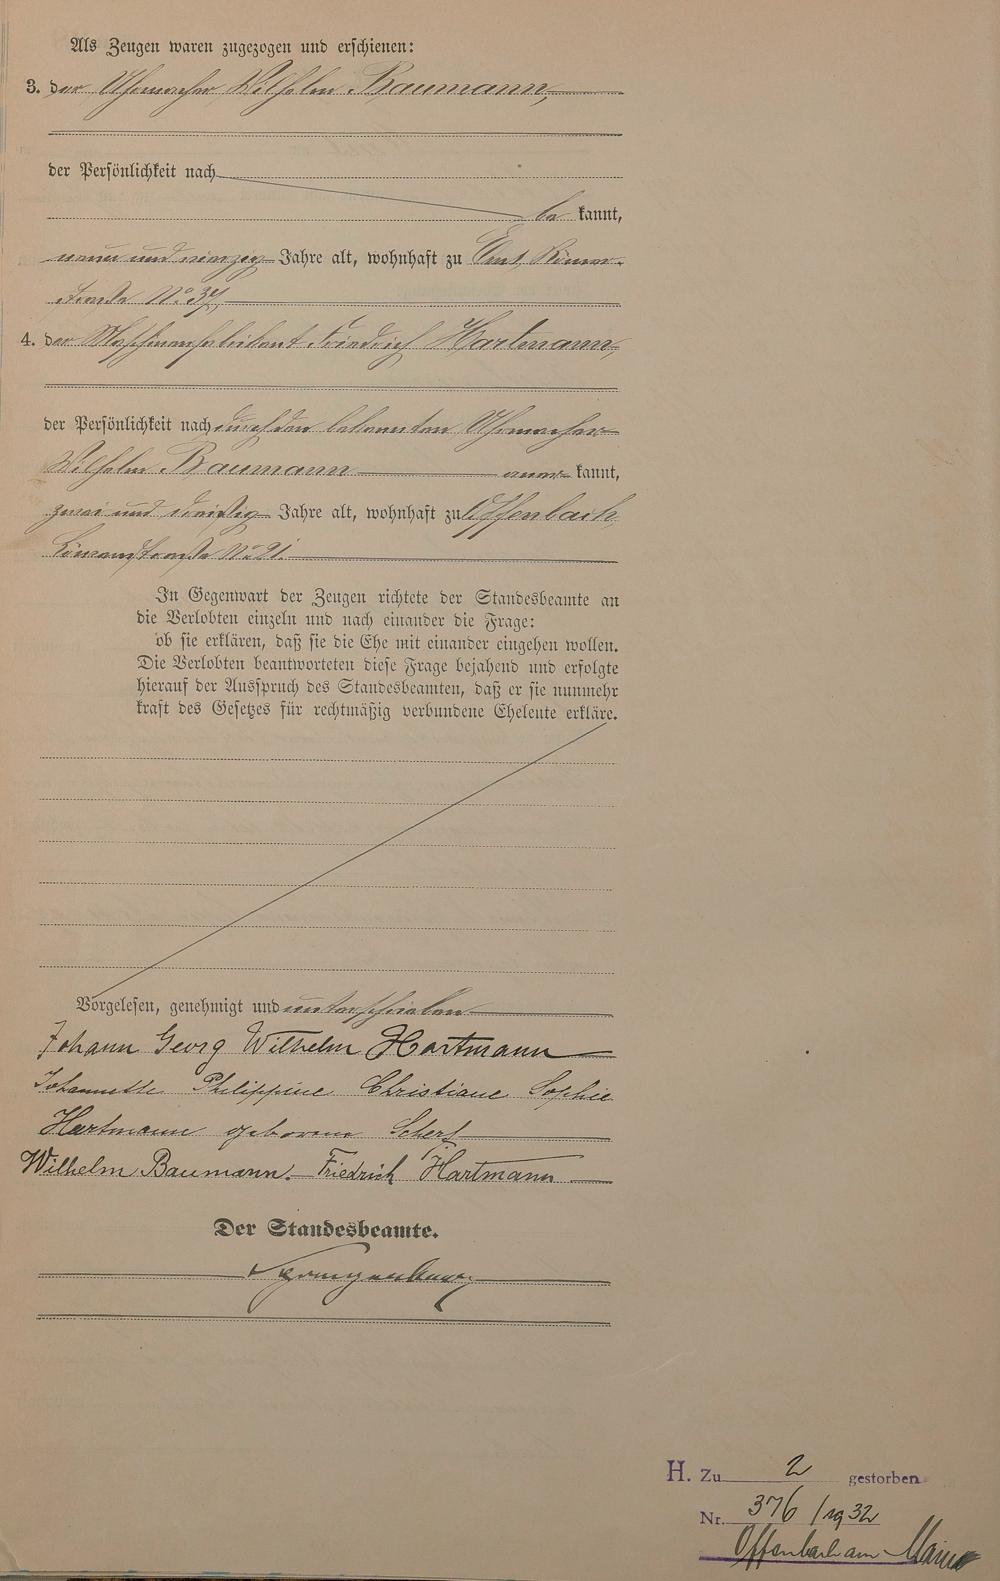 Als Zeugen waren zugezogen und erschienen:
3. der Uhrmacher Wilhelm Baumann,
der Persönlichkeit nach
be kannt,
neun und vierzig Jahre alt, wohnhaft zu Ems, Römer-
straße No 37,
4. der Maschinenfabrikant Friedrich Hartmann,
der Persönlichkeit nach durch den bekannten Uhrmacher
Wilhelm Baumann aner- kannt,
zwei und dreißig Jahre alt, wohnhaft zu Offenbach,
Löwenstraße No 21.
In Gegenwart der Zeugen richtete der Standesbeamte an
die Verlobten einzeln und nach einander die Frage:
ob sie erklären, daß sie die Ehe mit einander eingehen wollen.
Die Verlobten beantworteten diese Frage bejahend und erfolgte
hierauf der Ausspruch des Standesbeamten, daß er sie nunmehr
kraft des Gesetzes für rechtmäßig verbundene Eheleute erkläre.
Vorgelesen, genehmigt und unterschrieben
Johann Georg Wilhelm Hartmann
Johannette Philippine Christiane Sophie
Hartmann geborene Scherf
Wilhelm Baumann. Friedrich Hartmann
Der Standesbeamte.
H. Zu 2 gestorben
Nr. 376 / 1932
Offenbach am Main